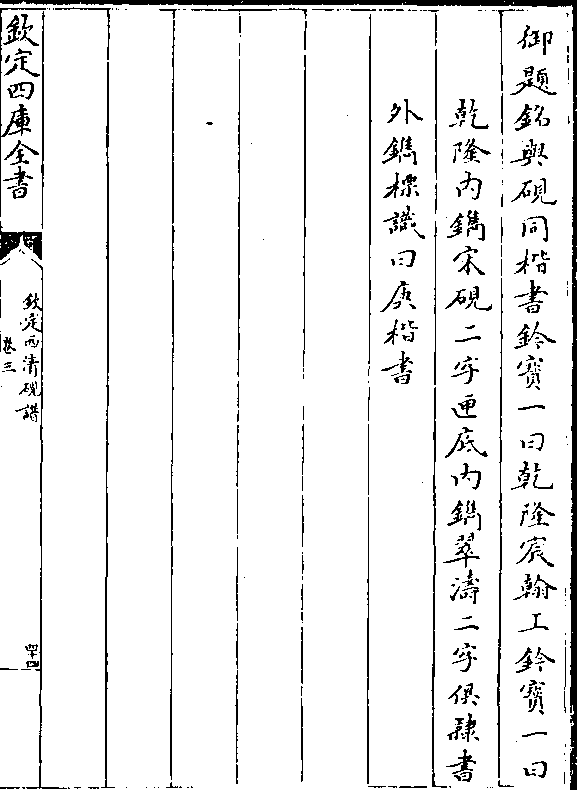 御題銘與硯同楷書鈐寶一曰乾隆宸翰工鈐寶一曰
乾隆内鐫宋硯二字匣底内鐫翠濤二字俱隸書
外鐫標識曰庚楷書
欽定四庫全書
欽定西清硯譜
卷三
四十四